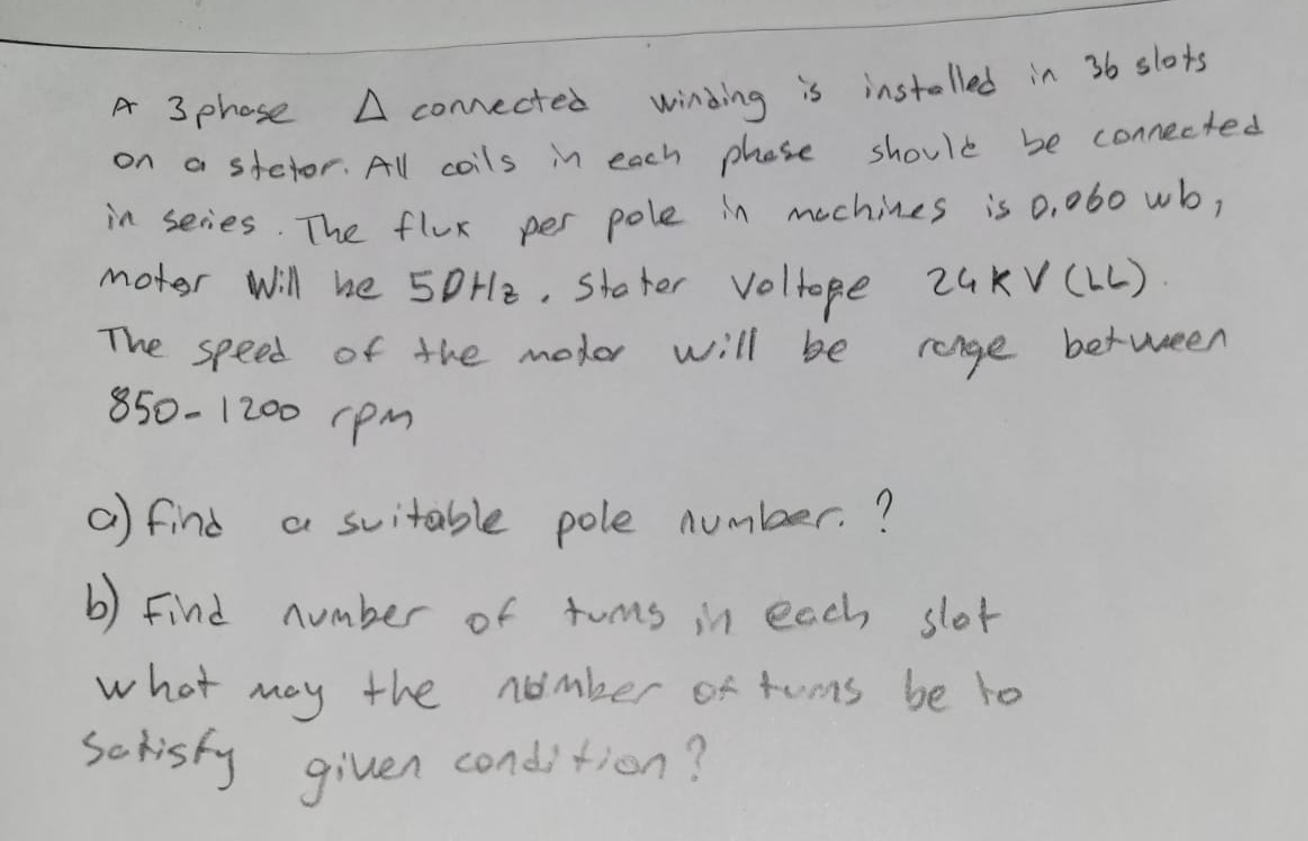 A 3 phase Δ connected winding is installed in 36 slots
on a stator. All coils in each phase should be connected
in series. The flux per pole in machines is 0.060 wb,
motor will be 50Hz. Stator voltage 24 kV (LL).
The speed of the motor will be range between
850-1200 rpm
a) find a suitable pole number.?
b) Find number of turns in each slot
what may the number of turns be to
satisfy given condition?